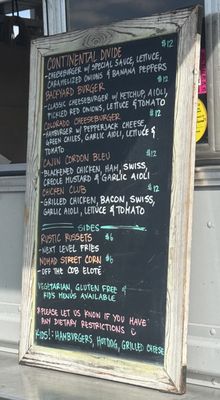 CONTINENTAL DIVIDE $12
- CHEESEBURGER W/ SPECIAL SAUCE, LETTUCE,
CARAMELIZED ONIONS & BANANA PEPPERS
BACKYARD BURGER $12
- CLASSIC CHEESEBURGER W/ KETCHUP, AIOLI,
PICKLED RED ONIONS, LETTUCE & TOMATO
COLORADO CHEESEBURGER $12
- HAMBURGER W/ PEPPERJACK CHEESE,
GREEN CHILES, GARLIC AIOLI, LETTUCE &
TOMATO
CAJUN CORDON BLEU $12
- BLACKENED CHICKEN, HAM, SWISS,
CREOLE MUSTARD & GARLIC AIOLI
CHICKEN CLUB $12
- GRILLED CHICKEN, BACON, SWISS,
GARLIC AIOLI, LETTUCE & TOMATO
SIDES
RUSTIC RUSSETS $6
- NEXT LEVEL FRIES
NOMAD STREET CORN $6
- OFF THE COB ELOTÉ
VEGETARIAN, GLUTEN FREE &
KIDS MENUS AVAILABLE
*PLEASE LET US KNOW IF YOU HAVE
ANY DIETARY RESTRICTIONS
KIDS: HAMBURGERS, HOTDOG, GRILLED CHEESE